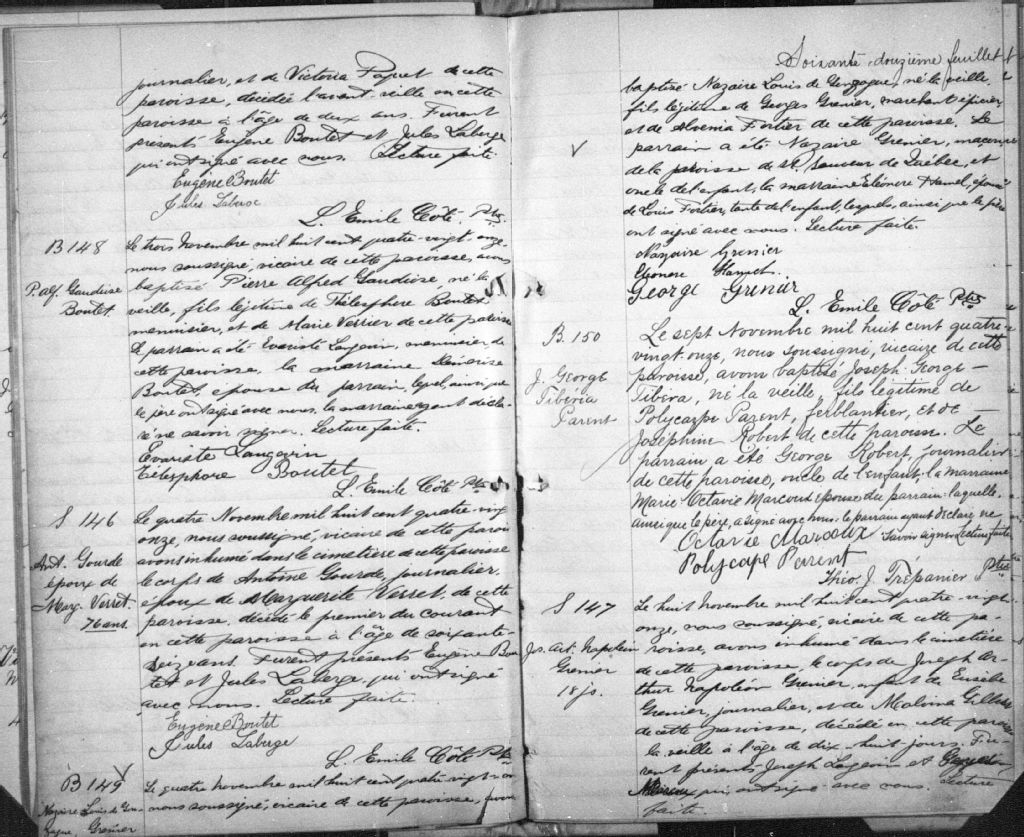 journalier, et de Victoria Paquet de cette
paroisse, décédée l'avant-veille en cette
paroisse à l'âge de deux ans. Furent
présents Eugène Boutet et Jules Laberge
qui ont signé avec nous. Lecture faite.
Eugène Boutet
Jules Laberge
L. Emile Côté Ptre
B 148
P. Alf. Gaudiose
Boutet
Le trois Novembre mil huit cent quatre-vingt-onze,
nous soussigné, vicaire de cette paroisse, avons
baptisé Pierre Alfred Gaudiose, né la
veille, fils légitime de Thélesphore Boutet
menuisier, et de Marie Verrier de cette paroisse
Le parrain a été Evariste Langevin, menuisier, de
cette paroisse, la marraine Démerise
Boutet, épouse du parrain, lequel, ainsi que
le père ont signé avec nous, la marraine ayant décla-
ré ne savoir signer. Lecture faite.
Evariste Langevin
Télesphore Boutet
L. Emile Côté Ptre
S 146
Ant. Gourde
époux de
Marg. Verret
76 ans
Le quatre Novembre mil huit cent quatre-vingt
onze, nous soussigné, vicaire de cette paroisse
avons inhumé dans le cimetière de cette paroisse
le corps de Antoine Gourde, journalier,
époux de Marguerite Verret, de cette
paroisse, décédé le premier du courant
en cette paroisse à l'âge de soixante-
seize ans. Furent présents Eugène Bou
tet et Jules Laberge, qui ont signé
avec nous. Lecture faite.
Eugène Boutet
Jules Laberge
L. Emile Côté Ptre
B 149
Nazaire Louis de Gon-
zague, Grenier
Le quatre Novembre mil huit cent quatre-vingt-on
nous soussigné, vicaire de cette paroisse, avons
Soixante-douzième feuillet
baptisé Nazaire Louis de Gonzague, né la veille
fils légitime de Georges Grenier, marchand épicier
et de Alvenia Fortier de cette paroisse. Le
parrain a été Nazaire Grenier, maçon
de la paroisse de St. Sauveur de Québec, et
oncle de l'enfant, la marraine Eléonore Hamel, épouse
de Louis Fortier, tante de l'enfant, lesquels, ainsi que le père
ont signé avec nous. Lecture faite.
Nazaire Grenier
Eleonore Hamel
George Grenier
L. Emile Côté Ptre
B. 150
J. George
Tibéria
Parent
Le sept Novembre mil huit cent quatre-
vingt-onze, nous soussigné, vicaire de cette
paroisse, avons baptisé Joseph-George-
Tibera, né la veille, fils légitime de
Polycarpe Parent, ferblantier, et de
Joséphine Robert de cette paroisse. Le
parrain a été George Robert, journalier
de cette paroisse, oncle de l'enfant, la marraine
Marie Octavie Marcoux épouse du parrain laquelle,
ainsi que le père, a signé avec nous, le parrain ayant déclaré ne
savoir signer. Lecture faite
Octavie Marcoux
Polycape Parent
Théo. J. Trépanier Ptre
S 147
Jos. Art. Napoléon
Grenier
18 js.
Le huit Novembre mil huit cent quatre-vingt-
onze, nous soussigné, vicaire de cette pa-
roisse, avons inhumé dans le cimetière
de cette paroisse, le corps de Joseph Ar-
thur Napoléon Grenier, enfant de Eusèbe
Grenier, journalier, et de Malvina Gilbert
de cette paroisse, décédé en cette paroisse
la veille à l'âge de dix-huit jours. Fu-
rent présents Joseph Langevin et
qui ont signé avec nous. Lecture
faite.